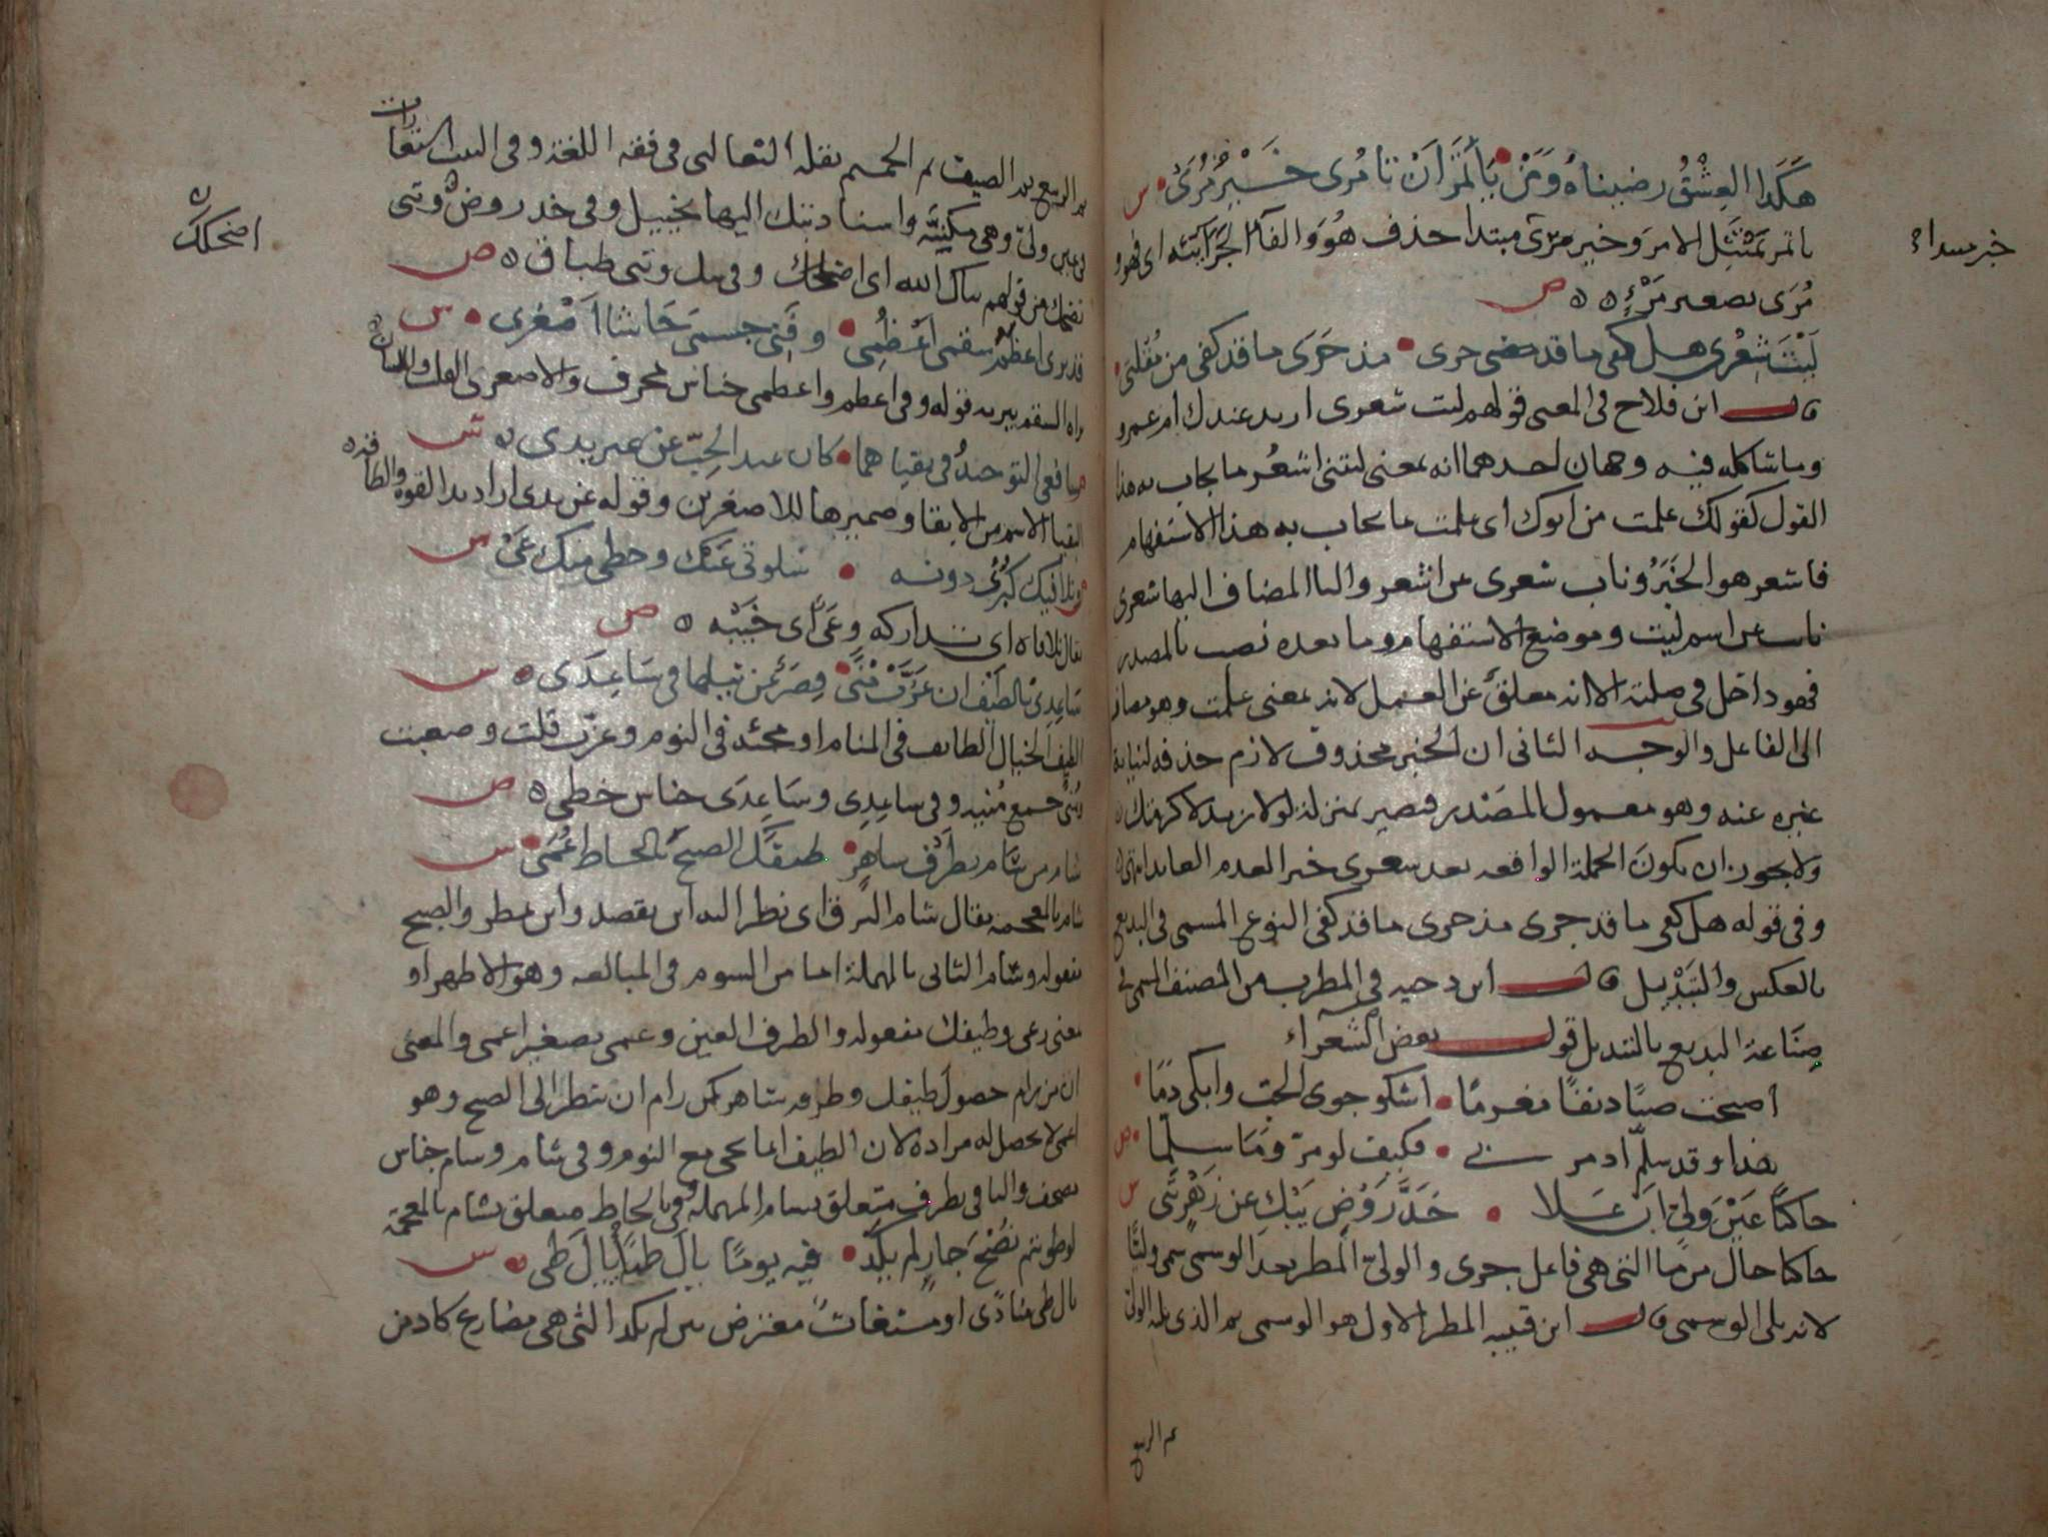 هَكَذا العِشْقُ رضيناهُ وَمَنْ يَأتَمِرْ اَنْ تأمُرى خَيْرُ مُرَىْ س
ياتمر يَمْتَثِل الامر وخير مرى مبتدا حذف هُوَ والفآ الجَزائيّه اى فهو
خبر مبتداء
مُرَى تصغير مَرْءٍ ص
لَيْتَ شِعْرى هل كفى ما قد جرى مذ جَرَى ما قد كفى من مُقلتى
قال ابن فلاح فى المعنى قولهم ليت شعرى ازيد عندك ام عمرو
وما شاكله فيه وجهان احدهما انه بمعنى ليتنى اشعُر ما يجاب به هذا
القول كقولك علمت من ابوك اى علمت ما يجاب به هذا الاستفهام
فاشعر هو الخبَرُ وناب شعرى عن اشعر واليا المضاف اليها شعرى
ناب عن اسم ليت وموضع الاستفهام وما بعده نصب بالمصدر
فهو داخل فى صلته الا انه معلق عن العمل لانه بمعنى علمت وهو مضاف
الى الفاعل والوجه الثانى ان الخبر محذوف لازم حذفه لنيابة
غيره عنه وهو معمول المصْدر فيصير بمنزلة لولا زيد لاكرمتك
ولا يجوز ان يكونَ الجملة الواقعه بعد شعرى خبر العدم العايد انتهى
وفى قوله هل كفى ما قد جرى مذ جرى ما قد كفى النوع المسمى فى البديع
بالعكس والتبْديل قال ابن دحيه فى المطرب من المصنف المسمى فى
صِنَاعة البديع بالتبديل قول بعض الشعرآء
اصبحت صبًّا دنفًا مغرمًا اشكو جوى الحب وابكى دمَا
هذا وقد سلّم اذ مر بى فكيف لو مرّ وَمَا سلّما ص
حاكيًا عَيْنَ وَلِىٍّ اِنْ عَلا خَدَّ رَوْضٍ يَبْكِ عن زَهْرٍ تَبَى س
حاكيا حال من ما التى هى فاعل جرى والولىّ المطر بعد الوسمى سمى وليًّا
لانه يلى الوسمى قال ابن قتيبه المطر الاول هو الوسمى ثم الذى يليه الولى
ثم الربيع
ثم الربيع ثم الصيف ثم الحميم نقله الثعالبى فى فقه اللغة وفى البيت استعارات
فى عين ولىّ وهى مكنيّه واسناد تبك اليها تخييل وفى خد روضٍ وتبى
تضحك من قولهم بياك الله اى اضحكك وفى يبك وتبى طباق ص
اضحكك
قد برى اعظمُ سقمى اَعْظُمِى وفَنِى جسمى حَاشا اَصْغَرى س
براه السقم يبريه قوله وفى اعظم واعظمى جناس محرف والاصغرى القلب واللسان
شافعى التوحيدُ فى بقياهما كان عند الحبّ عن غير يدى س
البقيا الاسم من الابقا وضميرها للاصغرين وقوله عن يدى اراد بيد القوه والطاقه
وتلافيك كبُرْئى دونه سلوتى عَنْك وحظى منك عَىْ س
يقال تلافاه اى تداركه وعَىّ اى خَيْبَه ص
سَاعِدِى بالطّيْف ان عَزَّتْ مُنًى قِصَرٌ عن نيلها فى سَاعِدَى س
الطيف الخيال الطايف فى المنام او مجئه فى النوم وعزّت قلت وصعبت
ومُنًى جمع مُنيه وفى ساعِدِى وسَاعِدَى جناس خطى ص
شام من سَام بطرْف ساهِرٍ طيفَك الصبحَ بالحاظ عُمَىْ س
شام بالمعجمة يقال شام البرق اى نظر اليه اين يقصد واين يمطر والصبح
مفعوله وسام الثانى بالمهملة اما من السوم فى المبالغه وهو الاظهر او
بمعنى رعى وطيفك مفعوله والطرف العين وعمى تصغير اعمى والمعنى
ان من رام حصول طيفك وطرفه ساهر كمن رام ان ينظر الى الصبح وهو
اعمى لا يحصل له مراده لان الطيف انما يجى مع النوم وفى شام وسام جناس
تصحيف واليا فى بطرف متعلق بسام المهملة وفى بالحاظ متعلق بشام بالمعجمة
لو طويتم نُصْحَ جارٍ لم يكدْ فيه يومًا يالَ طَيًّا يالَ طَى س
يال طى منادَى او مستغاث معترض بين لم يكد التى هى مضارع كاد من